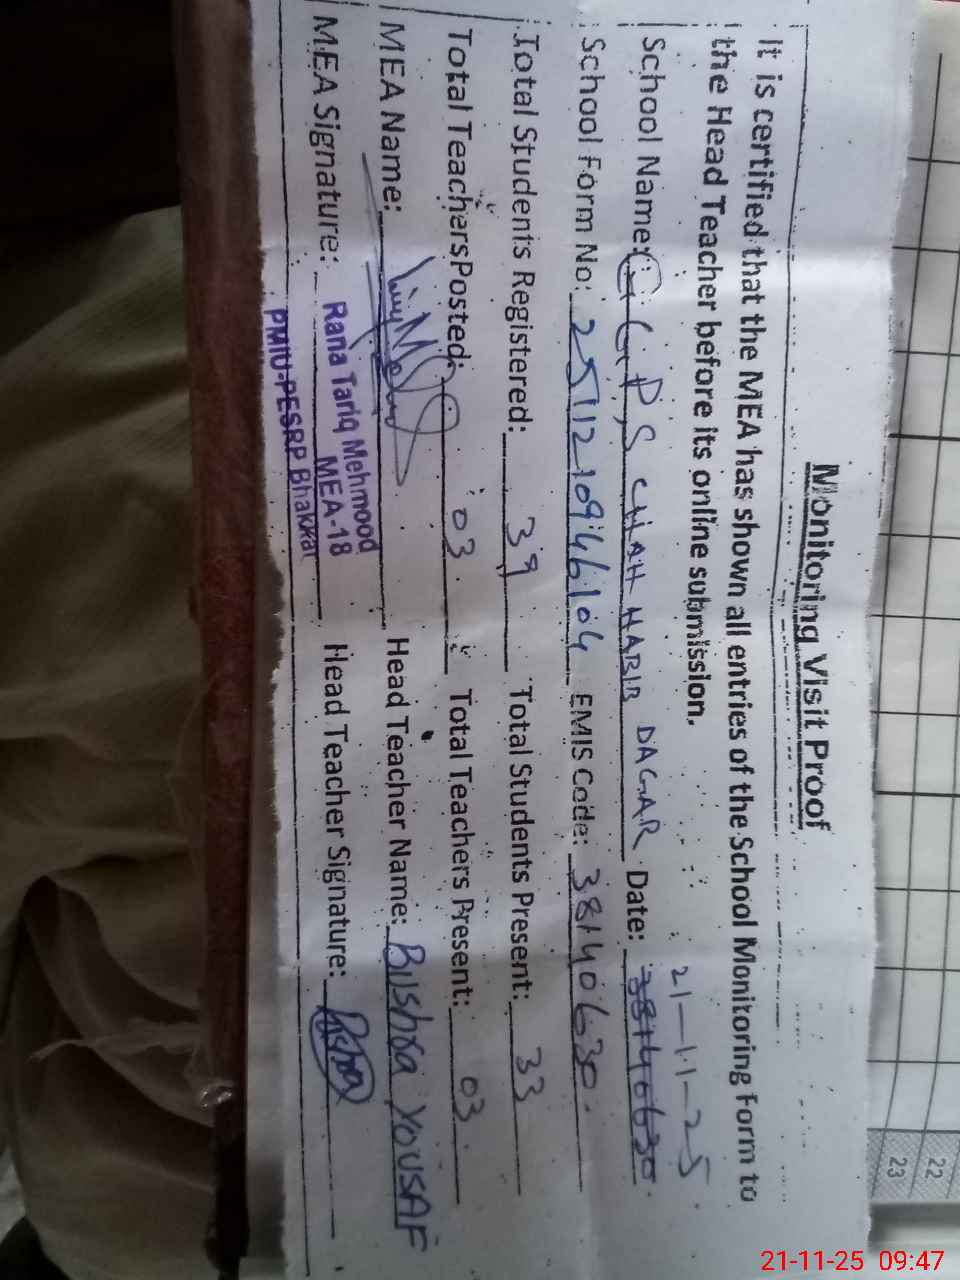 Monitoring Visit Proof
It is certified that the MEA has shown all entries of the School Monitoring Form to
the Head Teacher before its online submission.
21-11-25
School Name: G.G.P.S CHAH HABIB DAGAR Date: 38140630
School Form No: 25112109446104 EMIS Code: 38140630
Total Students Registered: 39 Total Students Present: 33
Total Teachers Posted: 03 Total Teachers Present: 03
MEA Name: Head Teacher Name: Bushra YOUSAF
MEA Signature: Head Teacher Signature: Bushra
Rana Tariq Mehmood
MEA-18
PMIU-PESRP Bhakkar
22
23
21-11-25 09:47